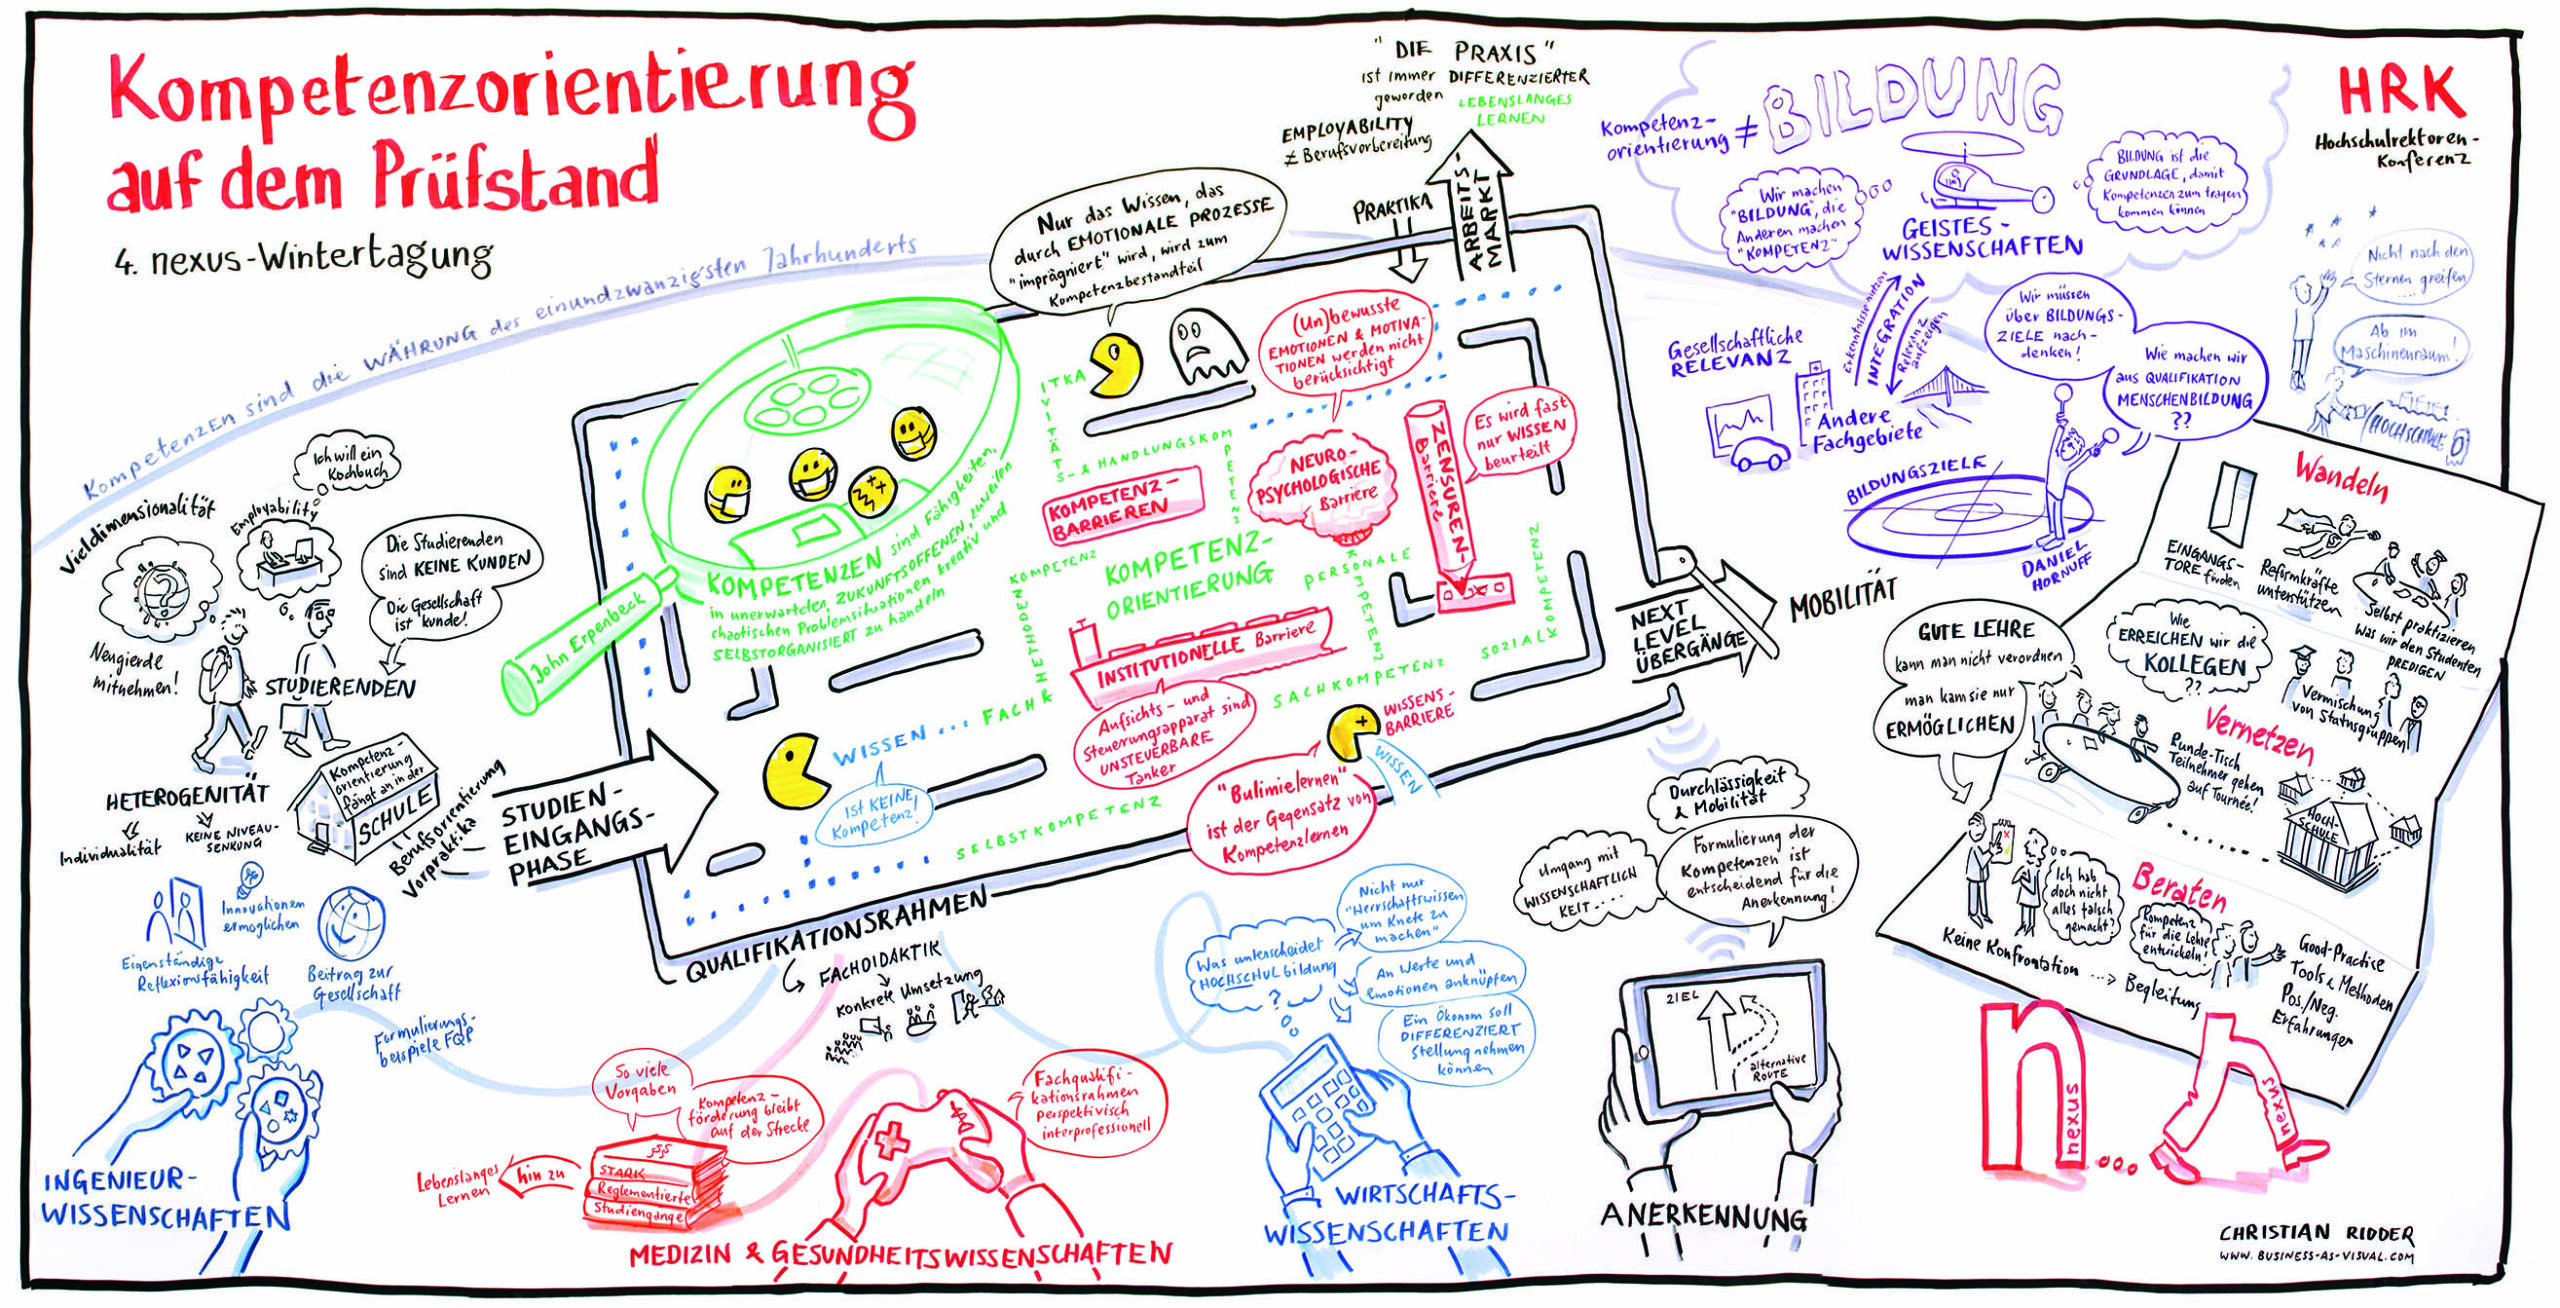 Kompetenzorientierung
auf dem Prüfstand
4. nexus-Wintertagung
Kompetenzen sind die WÄHRUNG des einundzwanzigsten Jahrhunderts
"DIE PRAXIS"
ist immer DIFFERENZIERTER
geworden
LEBENSLANGES
LERNEN
EMPLOYABILITY
≠ Berufsvorbereitung
PRAKTIKA
ARBEITS-
MARKT
Kompetenz-
orientierung ≠
BILDUNG
Wir machen
"BILDUNG", die
Anderen machen
"KOMPETENZ"
GEISTES-
WISSENSCHAFTEN
BILDUNG ist die
GRUNDLAGE, damit
Kompetenzen zum tragen
kommen können
HRK
Hochschulrektoren-
Konferenz
Nicht nach den
Sternen greifen
....
Ab im
Maschinenraum!
HOCHSCHULE
Gesellschaftliche
RELEVANZ
Erkenntnisse nutzen
INTEGRATION
Relevanz
aufzeigen
Andere
Fachgebiete
Wir müssen
über BILDUNGS-
ZIELE nach-
denken!
Wie machen wir
aus QUALIFIKATION
MENSCHENBILDUNG
??
BILDUNGSZIELE
DANIEL
HORNUFF
Nur das Wissen, das
durch EMOTIONALE PROZESSE
"imprägniert" wird, wird zum
Kompetenzbestandteil
(Un)bewusste
EMOTIONEN & MOTIVA-
TIONEN werden nicht
berücksichtigt
NEURO-
PSYCHOLOGISCHE
Barriere
ZENSUREN-
Barriere
Es wird fast
nur WISSEN
beurteilt
KOMPETENZ-
BARRIEREN
KOMPETENZ-
ORIENTIERUNG
INSTITUTIONELLE Barriere
Aufsichts- und
Steuerungsapparat sind
UNSTEUERBARE
Tanker
S- & HANDLUNGSKOMPETENZ
FACH & METHODENKOMPETENZ
PERSONALE KOMPETENZ
SACHKOMPETENZ
SOZIALKOMPETENZ
SELBSTKOMPETENZ
KOMPETENZEN sind Fähigkeiten,
in unerwarteten, ZUKUNFTSOFFENEN, zuweilen
chaotischen Problemsituationen kreativ und
SELBSTORGANISIERT zu handeln
John Erpenbeck
WISSEN...
Ist KEINE
Kompetenz!
WISSENS-
BARRIERE
WISSEN
"Bulimielernen"
ist der Gegensatz von
Kompetenzlernen
Vieldimensionalität
Employability
Ich will ein
Kochbuch
Die Studierenden
sind KEINE KUNDEN
Die Gesellschaft
ist "kunde!
Neugierde
mitnehmen!
STUDIERENDEN
HETEROGENITÄT
Individualität
KEINE NIVEAU-
SENKUNG
Kompetenz-
orientierung
fängt an in der
SCHULE
Berufsorientierung
Vorpraktika
STUDIEN-
EINGANGS-
PHASE
QUALIFIKATIONSRAHMEN
FACHDIDAKTIK
Konkrete Umsetzung
NEXT
LEVEL
ÜBERGÄNGE
MOBILITÄT
Innovationen
ermöglichen
Eigenständige
Reflexionsfähigkeit
Beitrag zur
Gesellschaft
Formulierungs-
beispiele FQR
INGENIEUR-
WISSENSCHAFTEN
So viele
Vorgaben
Kompetenz-
förderung bleibt
auf der Strecke
§§§
STARK
Reglementierte
Studiengänge
hin zu
Lebenslanges
Lernen
Fachqualifi-
kationsrahmen
perspektivisch
interprofessionell
MEDIZIN & GESUNDHEITSWISSENSCHAFTEN
Was unterscheidet
HOCHSCHULbildung
?
Nicht nur
"Herrschaftswissen
um Knete zu
machen"
An Werte und
Emotionen anknüpfen
Ein Ökonom soll
DIFFERENZIERT
Stellung nehmen
können
WIRTSCHAFTS-
WISSENSCHAFTEN
Durchlässigkeit
& Mobilität
Umgang mit
WISSENSCHAFTLICH
KEIT....
Formulierung der
Kompetenzen ist
entscheidend für die
Anerkennung!
ZIEL
alternative
ROUTE
ANERKENNUNG
GUTE LEHRE
kann man nicht verordnen
man kann sie nur
ERMÖGLICHEN
Wandeln
EINGANGS-
TORE finden
Reformkräfte
unterstützen
Selbst praktizieren
Was wir den Studenten
PREDIGEN
Wie
ERREICHEN wir die
KOLLEGEN
??
Vermischung
von Statusgruppen
Vernetzen
Runde-Tisch
Teilnehmer gehen
auf Tournée!
HOCH-
SCHULE
Beraten
Ich hab
doch nicht
alles falsch
gemacht?
Kompetenz
für die Lehre
entwickeln!
Keine Konfrontation ...> Begleitung
Good-Practise
Tools & Methoden
Pos./Neg.
Erfahrungen
n nexus ... n nexus
CHRISTIAN RIDDER
WWW.BUSINESS-AS-VISUAL.COM